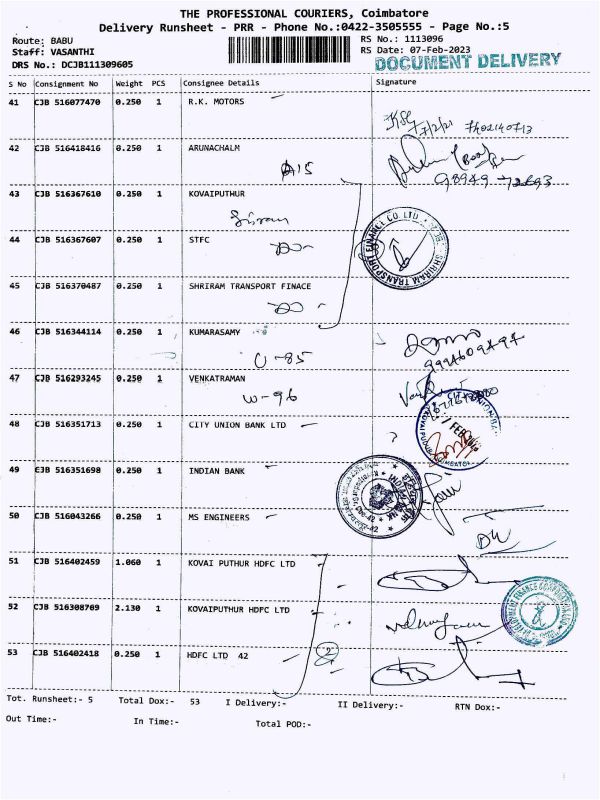 THE PROFESSIONAL COURIERS, Coimbatore
Delivery Runsheet - PRR - Phone No.:0422-3505555 - Page No.:5
Route: BABU
RS No.: 1113096
Staff: VASANTHI
RS Date: 07-Feb-2023
DRS No.: DCJB111309605
DOCUMENT DELIVERY
S No Consignment No Weight PCS Consignee Details Signature
41 CJB 516077470 0.250 1 R.K. MOTORS
42 CJB 516418416 0.250 1 ARUNACHALM
A15
43 CJB 516367610 0.250 1 KOVAIPUTHUR
44 CJB 516367607 0.250 1 STFC
SHRIRAM TRANSPORT FINANCE CO. LTD.
45 CJB 516370487 0.250 1 SHRIRAM TRANSPORT FINACE
46 CJB 516344114 0.250 1 KUMARASAMY
U-85
47 CJB 516293245 0.250 1 VENKATRAMAN
W-96
48 CJB 516351713 0.250 1 CITY UNION BANK LTD
49 CJB 516351698 0.250 1 INDIAN BANK
50 CJB 516043266 0.250 1 MS ENGINEERS
51 CJB 516402459 1.060 1 KOVAI PUTHUR HDFC LTD
52 CJB 516308709 2.130 1 KOVAIPUTHUR HDFC LTD
53 CJB 516402418 0.250 1 HDFC LTD 42
Tot. Runsheet:- 5 Total Dox:- 53 I Delivery:- II Delivery:- RTN Dox:-
Out Time:- In Time:- Total POD:-